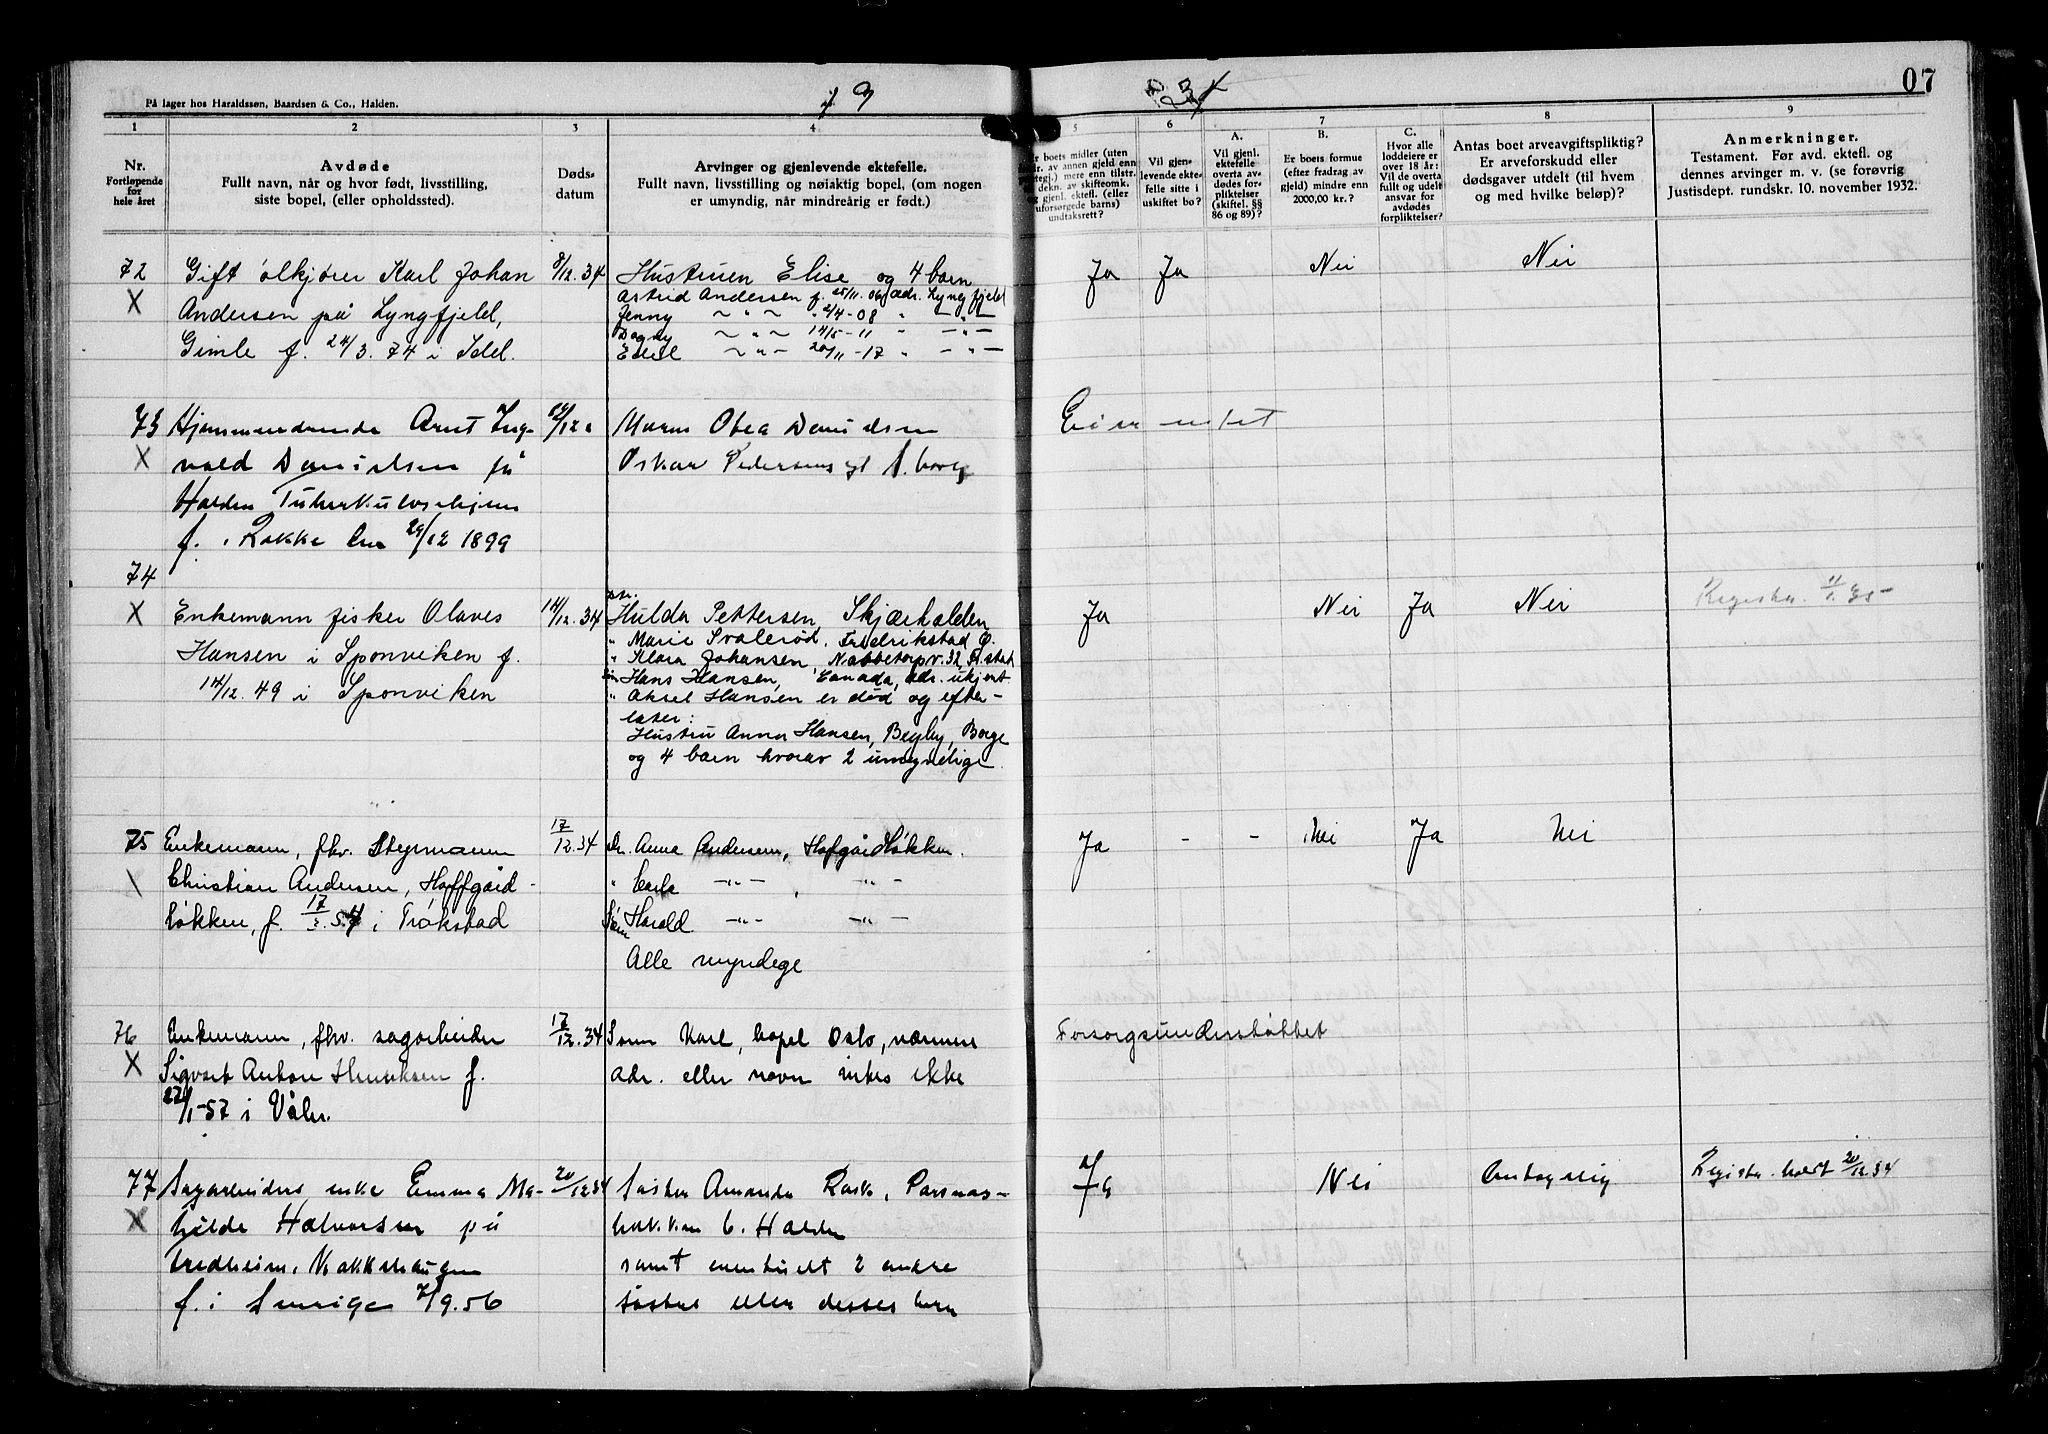 På lager hos Haraldssøn, Baardsen & Co., Halden.
19
34
07
1
2
3
4
5
6
7
8
9
Nr.
Fortløpende
for
hele året
Avdøde
Fullt navn, når og hvor født, livsstilling,
siste bopel, (eller opholdssted).
Døds-
datum
Arvinger og gjenlevende ektefelle.
Fullt navn, livsstilling og nøiaktig bopel, (om nogen
er umyndig, når mindreårig er født.)
r boets midler (uten
r. av annen gjeld enn
tegj.) mere enn tilstr.
dekn. av skifteomk.
g gjenl. ektefl. (eller
uforsørgede barns)
undtaksrett?
Vil gjen-
levende ekte-
felle sitte i
uskiftet bo?
A.
Vil gjenl.
ektefelle
overta av-
dødes for-
pliktelser
(skiftel. §§
86 og 89)?
B.
Er boets formue
(efter fradrag av
gjeld) mindre enn
2000,00 kr.?
C.
Hvor alle
loddeiere er
over 18 år:
Vil de overta
fullt og udelt
ansvar for
avdødes
forpliktelser?
Antas boet arveavgiftspliktig?
Er arveforskudd eller
dødsgaver utdelt (til hvem
og med hvilke beløp)?
Anmerkninger.
Testament. Før avd. ektefl. og
dennes arvinger m. v. (se forøvrig
Justisdept. rundskr. 10. november 1932.
72 Gift ølkjører Karl Johan 8/12.34 Hustruen Elise og 4 barn Ja Ja Nei Nei
X Andersen på Lyngfjeld, Astrid Andersen f. 25/11.06 adr. Lyngfjeld
Gimle f. 24/3.74 i Idd. Jenny ~ " ~ " 2/4-08 " - " -
Dagny ~ " ~ 14/5-11 " - " -
Edel ~ " - 20/11-17 " - " -
73 Hjemmeværende Arnt Ing- /12 " Moren Olea Danielsen Eier intet
X vald Danielsen på Oskar Pedersens
Halden Tuberkulosehjem
f. i Rokke den 29/12 1899
74
X Enkemann fisker Olaves 14/12.34 Hulda Pettersen Skjærhalden Ja Nei Ja Nei
Hansen i Sponviken f. " Marie Svalerød, Fredrikstad Ø.
14/12.49 i Sponviken " Klara Johansen, Nabbetorpv. 32, Fr.stad
Hans Hansen, Canada, adr. ukjent
" Aksel Hansen er død og efter-
later:
Hustru Anna Hansen, Begby, Borge
og 4 barn hvorav 2 umyndige
75 Enkemann, fhv. Styrmann 17/12.34 Dr. Anna Andersen, Hofgårdløkken. Ja - - Nei Ja Nei
\ Christian Andersen, Hoffgård- " Carla -"- , -"-
løkken, f. 17/3.54 i Trøkstad Søn Harald -"- -"-
Alle myndige
76 Enkemann, fhv. sagarbeider 17/12.34 Sønn Karl, bopel Oslo, nærmere Forsorgsunderstøttet
X Sigvart Anton Henriksen f. adr. eller navn vites ikke
22/1-57 i Våler.
77 Sagarbeiders enke Emma Ma- 20/12 34 Søster Amanda Rask, Parsnas- Ja Nei Antagelig Registr. holdt 20/12.34
X tilde Halvorsen på bakken 6. Halden
Fredheim, Kakkshaugen samt eventuelt 2 andre
f. i Sverige 7/9.56 søstre eller desses barn